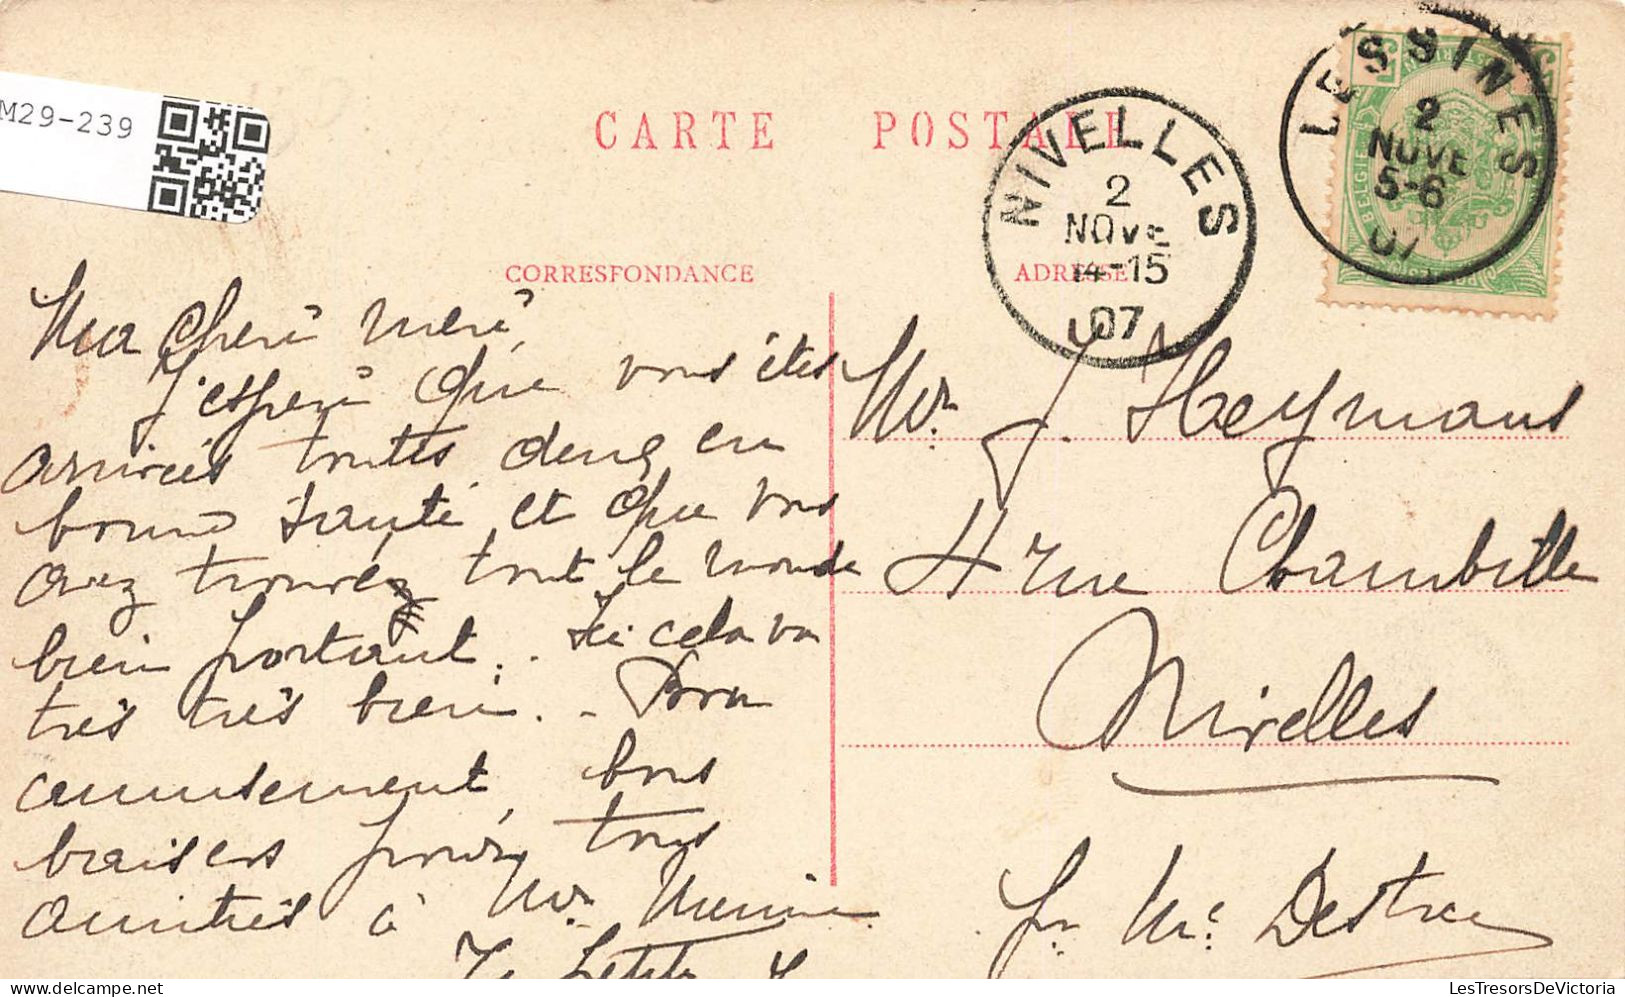 M29-239
CARTE POSTALE
NIVELLES
2
NOVE
14-15
07
LESSINES
2
NOVE
5-6
07
BELGIE
CORRESPONDANCE
ADRESSE
Ma chère mère,
J'espère que vous êtes
arrivées toutes deux en
bonne santé et que vous
avez trouvé tout le monde
bien portant. Ici cela va
très très bien. - Bon
amusement, bons
baisers pour tous
amitiés à Mr
Mr. J. Heymans
4 rue Chambille
Nivelles
pr Me Destrée
LesTresorsDeVictoria
www.delcampe.net